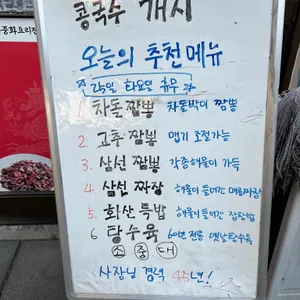 콩국수 개시
오늘의 추천메뉴
매주 화요일 휴무
1. 차돌짬뽕 차돌박이 짬뽕
2. 고추 짬뽕 맵기 조절가능
3. 삼선 짬뽕 각종해물이 가득
4. 삼선 짜장 해물이 들어간 명품짜장
5. 화산 특밥 해물이 들어간 잡탕밥
6 탕수육 60년 전통 옛날탕수육
소 중 대
사장님 경력 45년!
중화요리전